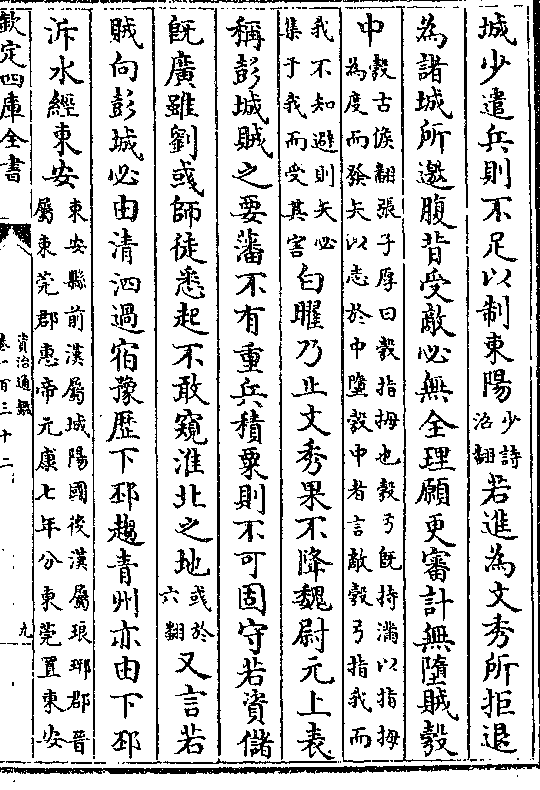 城少遣兵則不足以制東陽少詩沼翻若進為文秀所拒退
為諸城所邀腹背受敵必無全理願更審計無墮賊彀
中彀古侯翻張子厚曰彀指拇也彀弓既持滿以指拇為度而發矢以志於中墮彀中者言敵彀弓指我而
我不知避則矢必集于我而受其害白曜乃止文秀果不降魏尉元上表
稱彭城賊之要藩不有重兵積粟則不可固守若資儲
既廣雖劉彧師徒悉起不敢窺淮北之地彧於六翻又言若
賊向彭城必由清泗過宿豫歷下邳趨青州亦由下邳
沂水經東安東安縣前漢屬城陽國後漢屬琅邪郡晉屬東莞郡惠帝元康七年分東莞置東安
欽定四庫全書
資治通鑑
卷一百三十二
九